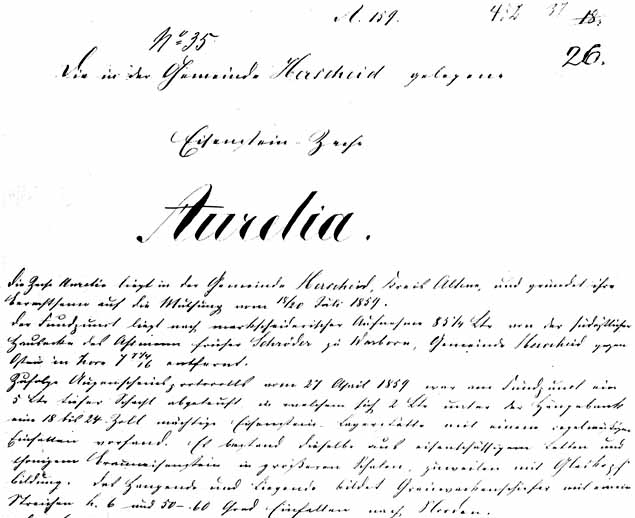 A. 159. 4:2 37 18.
No 35. 26.
Die in der Gemeinde Herscheid gelegene
Eisenstein-Zeche
Aurelia.
Die Zeche Aurelia liegt in der Gemeinde Herscheid, Kreis Altena, und gründet ihre
auf die Muthung vom 18/20 Juli 1859.
Der Fundpunct liegt nach markscheiderischer Aufnahme 85 1/4 Ltr von der südöstlichen
Hausecke des Schröder zu Warbom, Gemeinde Herscheid gegen
Osten in hora 7 entfernt.
Zufolge Augenscheinsprotocolls vom 27 April 1859 war am Fundpunct ein
5 Ltr tiefer Schacht abgeteuft in welchem sich 2 Ltr unter der Hängebank
eine 18 bis 24 Zoll mächtige Eisenstein-Lagerstätte mit einem regelmäßigen
Einfallen vorfand. Es bestand dieselbe aus eisenschüssigem Letten und
thonigem Brauneisenstein in größeren Schalen, zuweilen mit Glaskopf
bildung. Das Hangende und Liegende bildet Grauwackenschiefer mit einem
Streichen h. 6 und 50-60 Grad Einfallen nach Norden.